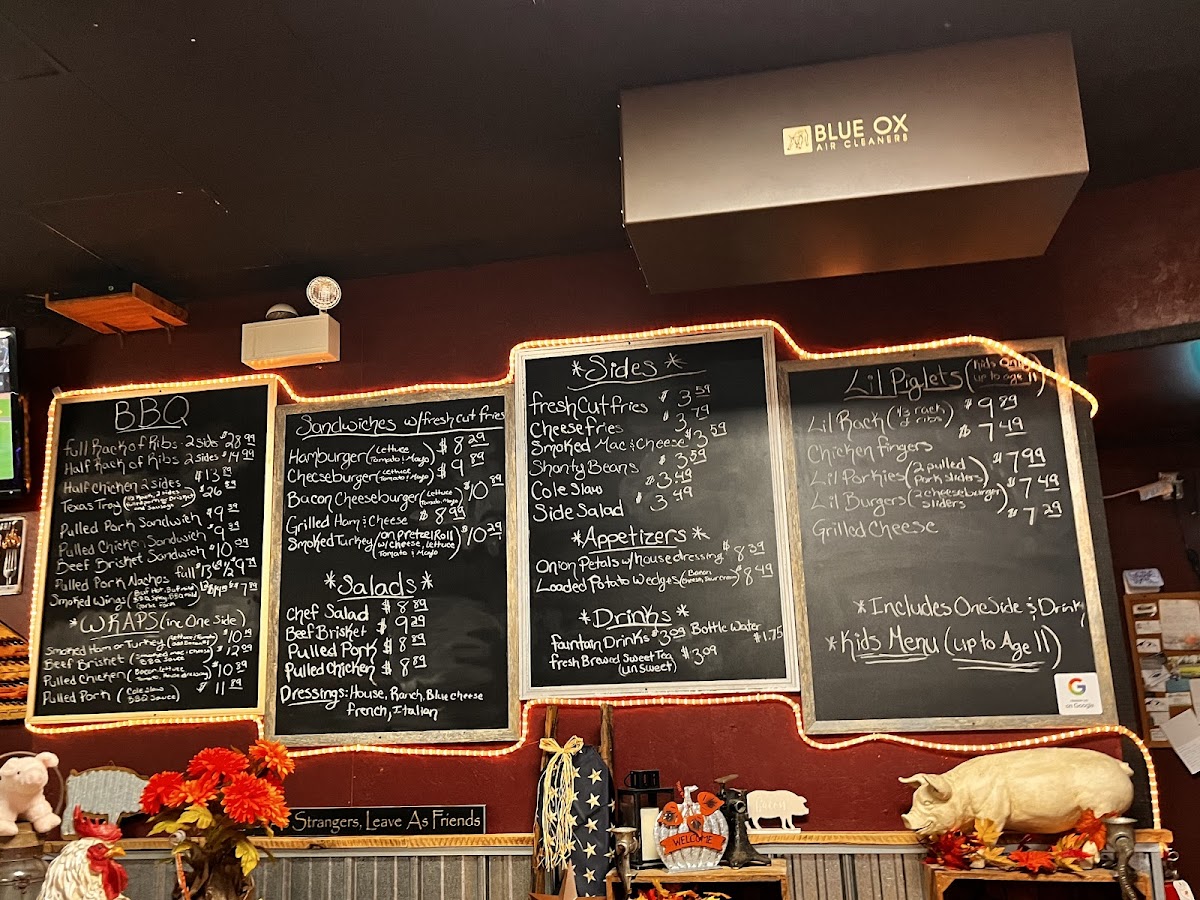 BLUE OX
AIR CLEANERS
BBQ
Full Rack of Ribs - 2 Sides $28.99
Half Rack of Ribs 2 Sides $14.99
Half Chicken 2 sides $13.89
Texas Tray $26.89
Pulled Pork Sandwich $9.39
Pulled Chicken Sandwich $9.39
Beef Brisket Sandwich $10.39
Pulled Pork Nachos full $13.69 1/2 $9.79
Smoked Wings
*WRAPS (inc One Side)
Smoked Ham or Turkey $10.29
Beef Brisket $12.99
Pulled Chicken (Bacon, Lettuce Tomato, House dressing) $10.89
Pulled Pork (Cole Slaw BBQ Sauce) $11.89
Sandwiches w/fresh cut fries
Hamburger (Lettuce Tomato & Mayo) $8.29
Cheeseburger (Lettuce Tomato & Mayo) $9.89
Bacon Cheeseburger (Lettuce Tomato, Mayo) $10.89
Grilled Ham & Cheese $8.99
Smoked Turkey (on Pretzel Roll w/ cheese, Lettuce Tomato & Mayo) $10.29
*Salads*
Chef Salad $8.89
Beef Brisket $9.29
Pulled Pork $8.89
Pulled Chicken $8.89
Dressings: House, Ranch, Blue cheese
french, Italian
*Sides*
fresh Cut fries $3.59
Cheese fries $3.79
Smoked Mac & Cheese $3.59
Shanty Beans $3.59
Cole Slaw $3.49
Side Salad $3.49
*Appetizers*
Onion Petals w/house dressing $8.39
Loaded Potato Wedges (Bacon Cheese, Sour Cream) $8.49
*Drinks*
fountain Drinks $3.09 Bottle Water $1.75
fresh Brewed Sweet Tea $3.09
(unsweet)
Lil Piglets (kids Only up to age 11)
Lil Rack (1/3 rack of ribs) $9.89
Chicken fingers $7.49
Lil Porkies (2 pulled pork sliders) $7.99
Lil Burgers (2 cheeseburger sliders) $7.49
Grilled Cheese $7.29
*Includes One Side & Drink
*Kids Menu (up to Age 11)
G
on Google
Strangers, Leave As Friends
WELCOME